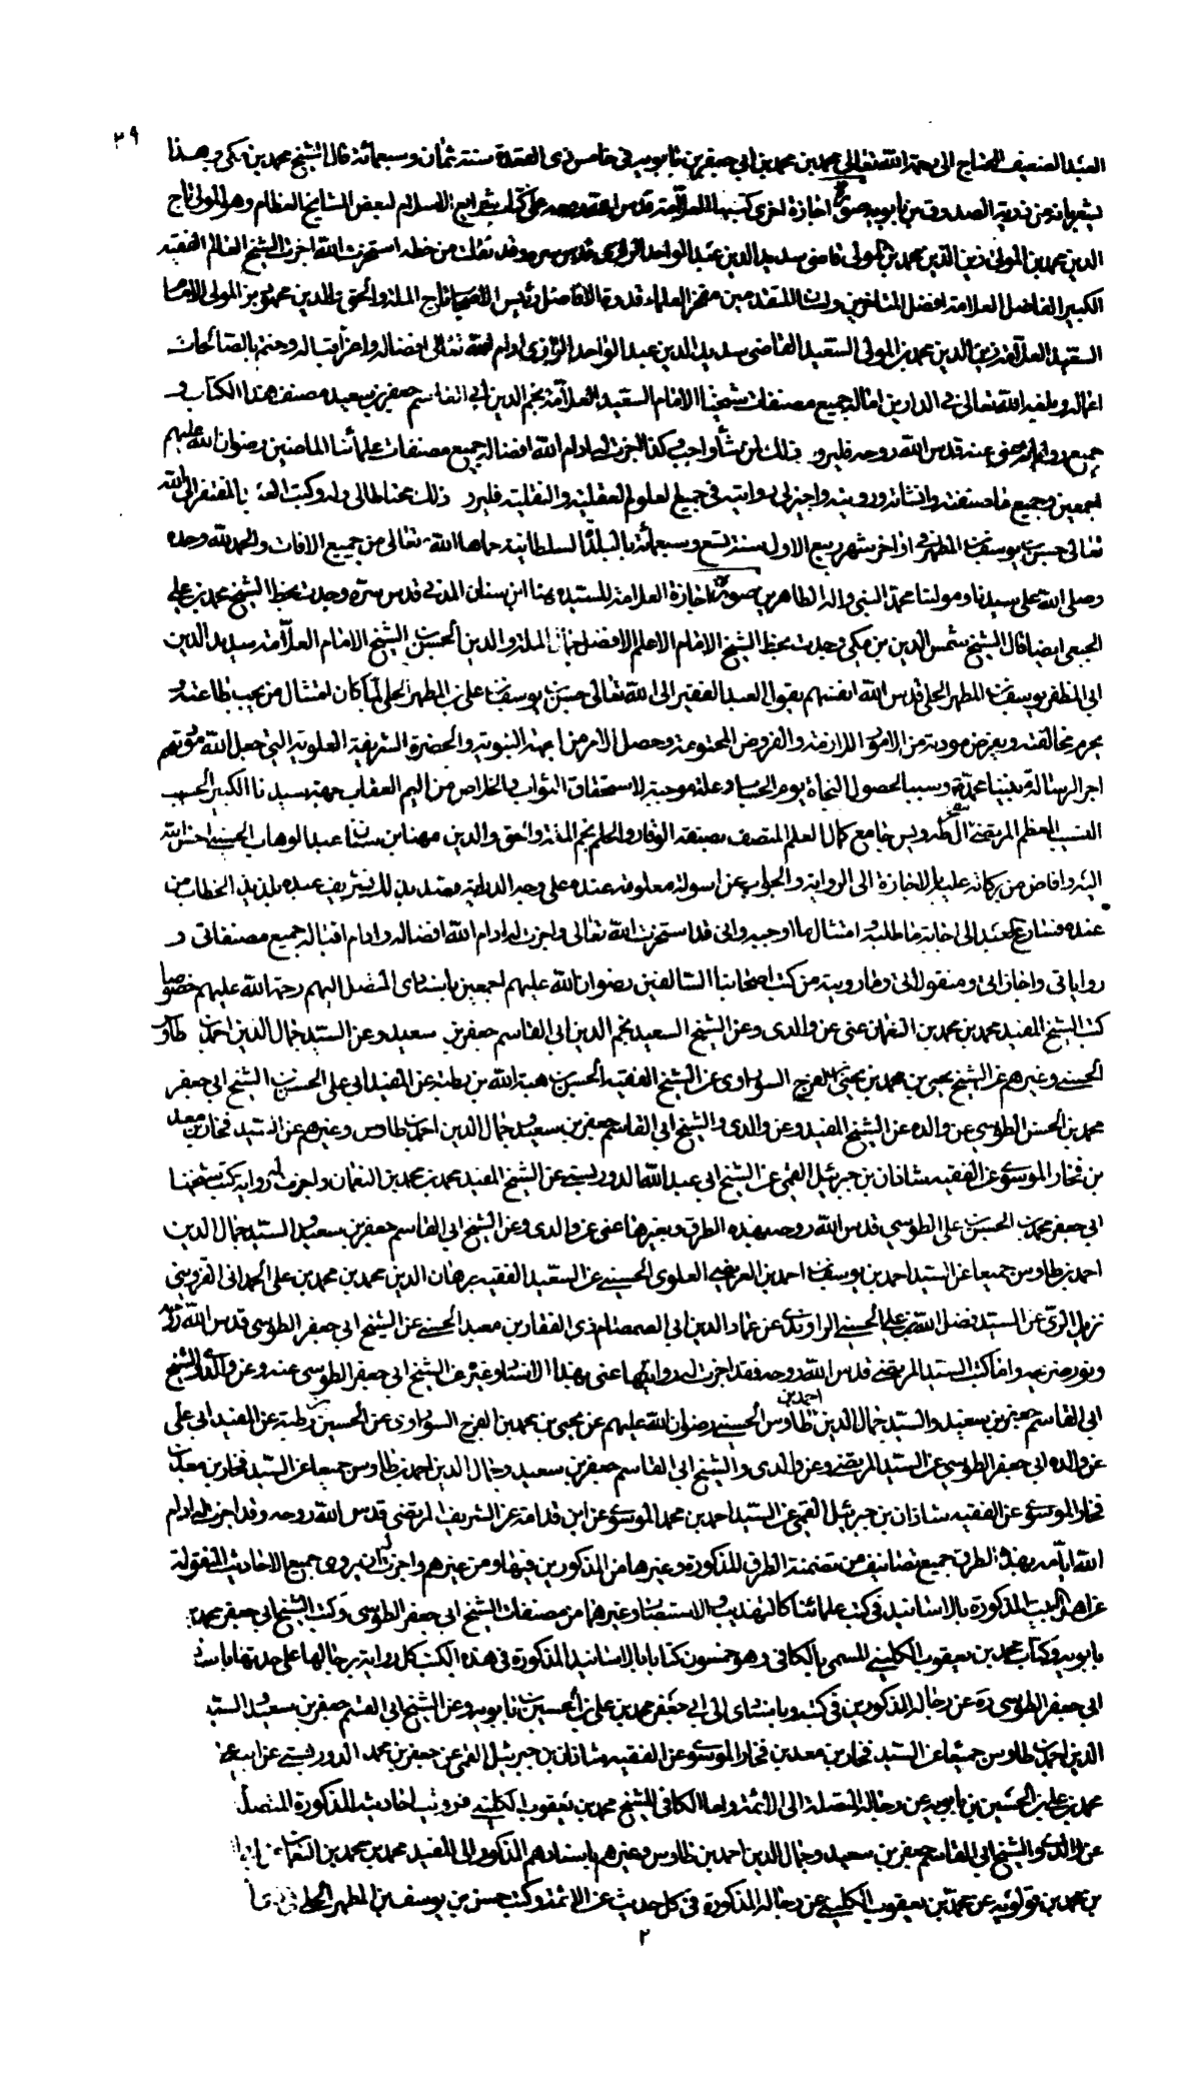 ٢٩
العبد الضعيف المحتاج الى رحمة الله تعالى محمد بن محمد بن ابي جعفر بن بابويه في خامس ذى القعدة سنة ثمان وسبعمائة قال الشيخ محمد بن مكي وهذا
يشعر بانه من ذرية الصدوق بن بابويه صورة اجازة اخرى كتبها العلامة قدس الله روحه على كتاب شرايع الاسلام لبعض المشايخ العظام وهو المولى تاج
الدين محمد بن المولى زين الدين محمد بن المولى قاضي سديد الدين عبد الواحد الرازى قدس سره وقد نقلت من خطه استخرت الله واجزت الشيخ العالم الفقيه
الكبير الفاضل العلامة افضل المتاخرين ولسان المتقدمين مفخر العلماء قدوة الافاضل رئيس الاصحاب تاج الملة والحق والدين محمود بن المولى الامام
السعيد العلامة زين الدين محمد بن المولى السعيد القاضي سديد الدين عبد الواحد الرازى ادام الله تعالى افضاله واعز اقباله وختم بالصالحات
اعماله وبلغه الله تعالى في الدارين اماله جميع مصنفات شيخنا الامام السعيد العلامة نجم الدين ابي القاسم جعفر بن سعيد مصنف هذا الكتاب و
جميع رواياته عنى عنه قدس الله روحه فليرو ذلك لمن شاء واحب وكذا اجزت له ادام الله افضاله جميع مصنفات علمائنا الماضين رضوان الله عليهم
اجمعين وجميع ما صنفته وانشأته ورويته واجيز لى روايته في جميع العلوم العقلية والنقلية فليرو ذلك محتاطا لى وله وكتب العبد المفتقر الى الله
تعالى حسن بن يوسف بن المطهر في اواخر شهر ربيع الاول سنة تسع وسبعمائة بالبلدة السلطانية حماها الله تعالى من جميع الافات والحمد لله وحده
وصلى الله على سيدنا ومولنا محمد النبي واله الطاهرين صورة اجازة العلامة للسيد مهنا ابن سنان المدني قدس سره وجدت بخط الشيخ محمد بن علي
الجبعي ايضا قال الشيخ شمس الدين بن مكي وجدت بخط الشيخ الامام الاعلم الافضل جمال الملة والدين الحسن بن الشيخ الامام العلامة سديد الدين
ابي المظفر يوسف بن المطهر الحلي قدس الله انفسهم يقول العبد الفقير الى الله تعالى حسن بن يوسف بن علي بن المطهر الحلي لما كان امتثال من يجب طاعته و
يحرم مخالفته ويفرض مودته من الامور اللازمة والفروض المحتومة وحصل الامر من الجهة النبوية والحضرة الشريفة العلوية التي جعل الله مودتهم
اجر الرسالة نبينا محمد وسببا لحصول النجاة يوم الحساب وعلة موجبة لاستحقاق الثواب والخلاص من اليم العقاب جهة سيدنا الكبير الحسيب
النسيب المعظم المرتضى مفخر ال طه ويس جامع كمال العلم المتصف بصفة الوقار والحلم نجم الملة والحق والدين مهنا بن سنان عبد الوهاب الحسيني احسن الله
اليه وافاض من بركاته عليه بالاجازة الى الرواية والجواب عن اسولة معلومة عنده على وجه الدراية بذلك تشريف عبده بلذيذ الخطاب من
عنده فسارع العبد الى اجابة ما طلبه و امتثال ما اوجبه وانى قد استخرت الله تعالى واجزت له ادام الله افضاله وادام اقباله جميع مصنفاتى و
رواياتى واجازاتى ومنقولاتى وما رويته من كتب اصحابنا السالفين رضوان الله عليهم اجمعين باسنادى المتصل اليهم رحمة الله عليهم خصوصا
كتب الشيخ المفيد محمد بن محمد بن النعمان عنى عن والدى وعن الشيخ السعيد نجم الدين ابي القاسم جعفر بن سعيد وعن السيد جمال الدين احمد بن طاوس
الحسني وغيرهم عن الشيخ يحيى بن محمد بن يحيى بن الفرج السوراوى عن الشيخ الفقيه الحسين بن هبة الله بن رطبة عن المفيد ابي على الحسن بن الشيخ ابي جعفر
محمد بن الحسن الطوسي عن والده عن الشيخ المفيد وعن والدى والشيخ ابي القاسم جعفر بن سعيد وجمال الدين احمد بن طاوس وغيرهم عن السيد فخار بن معد
بن فخار الموسوي عن الفقيه شاذان بن جبرئيل القمي عن الشيخ ابي عبد الله الدوريستى عن الشيخ المفيد محمد بن محمد بن النعمان واجزت له رواية كتب شيخنا
ابي جعفر محمد بن الحسن بن علي الطوسي قدس الله روحه بهذه الطرق وبغيرها عنى عن والدى وعن الشيخ ابي القاسم جعفر بن سعيد والسيد جمال الدين
احمد بن طاوس جميعا عن السيد احمد بن يوسف بن احمد بن العريضي العلوى الحسيني عن السعيد الفقيه برهان الدين محمد بن محمد بن علي الحمدانى القزويني
نزيل الرى عن السيد فضل الله بن علي الحسيني الراوندى عن عماد الدين ابي الصمصام ذى الفقار بن معبد الحسني عن الشيخ ابي جعفر الطوسي قدس الله روحه
ونور ضريحه واما كتب السيد المرتضى قدس الله روحه فقد اجزت له روايتها عنى بهذا الاسناد وغيره عن الشيخ ابي جعفر الطوسي عنه وعن والدى والشيخ
ابي القاسم جعفر بن سعيد والسيد جمال الدين احمد بن طاوس الحسيني رضوان الله عليهم عن يحيى بن محمد بن الفرج السوراوى عن الحسين بن رطبة عن المفيد ابي على
عن والده ابي جعفر الطوسي عن السيد المرتضى وعن والدى والشيخ ابي القاسم جعفر بن سعيد وجمال الدين احمد بن طاوس جميعا عن السيد فخار بن معد بن
فخار الموسوي عن الفقيه شاذان بن جبرئيل القمي عن السيد احمد بن محمد الموسوي عن ابن قدامة عن الشريف المرتضى قدس الله روحه وقد اجزت له ادام
الله ايامه بهذه الطرق جميع تصانيف من تضمنته الطرق المذكورة وغيرها من المذكورين فيها ومن غيرهم واجزت له ان يروى جميع الاحاديث المنقولة
عن اهل البيت المذكورة بالاسانيد في كتب علمائنا كالتهذيب والاستبصار وغيرهما من مصنفات الشيخ ابي جعفر الطوسي وكتب الشيخ ابي جعفر محمد بن
بابويه وكتاب محمد بن يعقوب الكليني المسمى بالكافي وهو خمسون كتابا بالاسانيد المذكورة في هذه الكتب كل رواية برجالها على حدتها باسنادى
ابي جعفر الطوسي ره عن رجاله المذكورين في كتبه وباسنادى الى ابي جعفر محمد بن علي بن الحسين بن بابويه وعن الشيخ ابي القسم جعفر بن سعيد والسيد
الدين احمد بن طاوس جميعا عن السيد فخار بن معد بن فخار الموسوي عن الفقيه شاذان بن جبرئيل القمي عن جعفر بن محمد الدوريستى عن ابيه عن
محمد بن علي بن الحسين بن بابويه عن رجاله المتصلة الى الائمة واما الكافي للشيخ محمد بن يعقوب الكليني فرويت احاديثه المذكورة المتصلة
عن والدى والشيخ ابي القاسم جعفر بن سعيد وجمال الدين احمد بن طاوس وغيرهم باسنادهم المذكور الى المفيد محمد بن محمد بن النعمان عن
بن محمد بن قولويه عن محمد بن يعقوب الكليني عن رجاله المذكورة في كل حديث عن الائمة وكتب حسن بن يوسف بن المطهر الحلي
٢